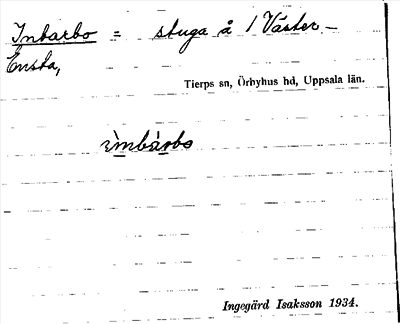 Intarbo = stuga å 1 Väster-
Ensta,
Tierps sn, Örbyhus hd, Uppsala län.
ìmbárbo
Ingegärd Isaksson 1934.